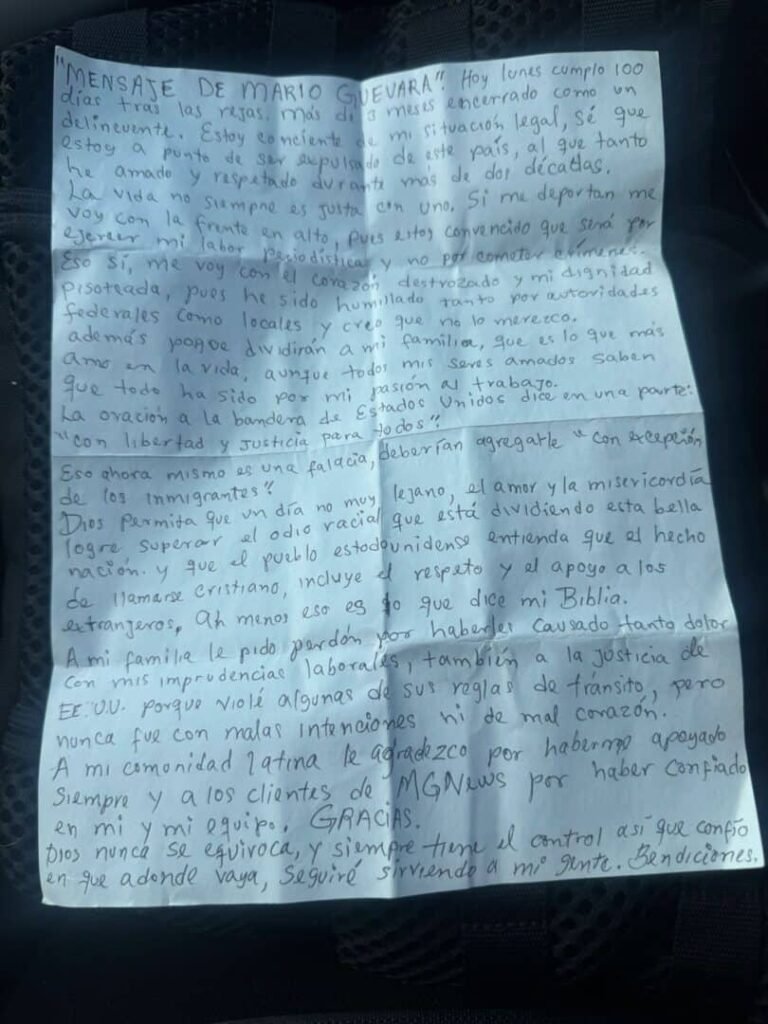 "MENSAJE DE MARIO GUEVARA". Hoy lunes cumplo 100
días tras las rejas, más de 3 meses encerrado como un
delincuente. Estoy conciente de mi situación legal, sé que
estoy a punto de ser expulsado de este país, al que tanto
he amado y respetado durante más de dos décadas.
La vida no siempre es justa con uno. Si me deportan me
voy con la frente en alto, pues estoy convencido que será por
ejercer mi labor periodística y no por cometer crímenes.
Eso sí, me voy con el corazón destrozado y mi dignidad
pisoteada, pues he sido humillado tanto por autoridades
federales como locales y creo que no lo merezco.
además porque dividirán a mi familia, que es lo que más
amo en la vida, aunque todos mis seres amados saben
que todo ha sido por mi pasión al trabajo.
La oración a la bandera de Estados Unidos dice en una parte:
"con libertad y justicia para todos".
Eso ahora mismo es una falacia, deberían agregarle "con excepción
de los inmigrantes".
Dios permita que un día no muy lejano, el amor y la misericordia
logre superar el odio racial que está dividiendo esta bella
nación. y que el pueblo estadounidense entienda que el hecho
de llamarse cristiano, incluye el respeto y el apoyo a los
extranjeros, Ah menos eso es lo que dice mi Biblia.
A mi familia le pido perdón por haberles causado tanto dolor
con mis imprudencias laborales, también a la justicia de
EE.UU. porque violé algunas de sus reglas de tránsito, pero
nunca fue con malas intenciones ni de mal corazón.
A mi comunidad latina le agradezco por haberme apoyado
siempre y a los clientes de MGNews por haber confiado
en mi y mi equipo. GRACIAS.
Dios nunca se equivoca, y siempre tiene el control así que confío
en que adonde vaya, seguiré sirviendo a mi gente. Bendiciones.